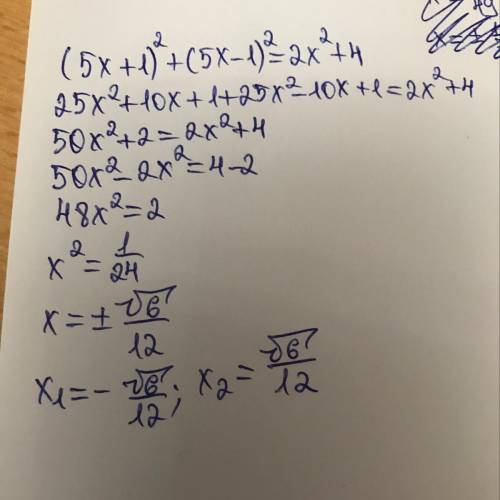 (5x+1)²+(5x-1)²=2x²+4
25x²+10x+1+25x²-10x+1=2x²+4
50x²+2=2x²+4
50x²-2x²=4-2
48x²=2
x²=1/24
x=±√6/12
x₁=-√6/12; x₂=√6/12